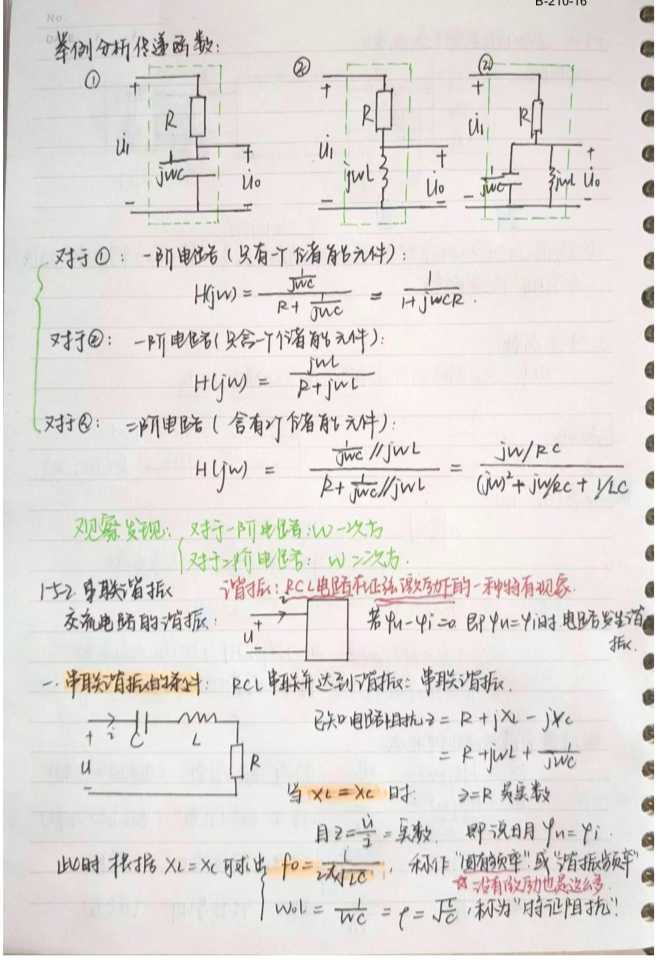 No.
DATE
B-210-16
举例分析传递函数:
① ② ②
+ R + + R + + R +
U̇i 1/jwC U̇o U̇i jwL U̇o U̇i 1/jwC jwL U̇o
- - - - - -
对于①: 一阶电路(只有一个储能元件):
H(jw) = (1/jwC)/(R+1/jwC) = 1/(1+jwCR).
对于②: 一阶电路(只含一个储能元件):
H(jw) = jwL/(R+jwL)
对于②: 二阶电路(含有2个储能元件):
H(jw) = (1/jwC//jwL)/(R+1/jwC//jwL) = (jw/RC)/((jw)²+jw/RC+1/LC)
观察发现: 对于一阶电路:w一次方
对于二阶电路: w二次方.
1-5.2 串联谐振 谐振:RCL电路在正弦激励下的一种特有现象.
交流电路的谐振: + u - i 若φu-φi=0 即φu=φi时 电路发生谐
振.
一. 串联谐振的条件: RCL串联并达到谐振: 串联谐振.
+ i C L 已知电路阻抗z = R+jXL-jXC
u R = R+jwL+1/jwC
- 当 XL=XC 时 z=R 为实数
且z=U̇/İ=实数. 即说明φu=φi.
此时 根据XL=XC可求出 f0=1/2π√LC, 称作"固有频率"或"谐振频率"
☆:没有激励也是这么多.
w0L = 1/wC = ρ = √L/C, 称为"特征阻抗"!